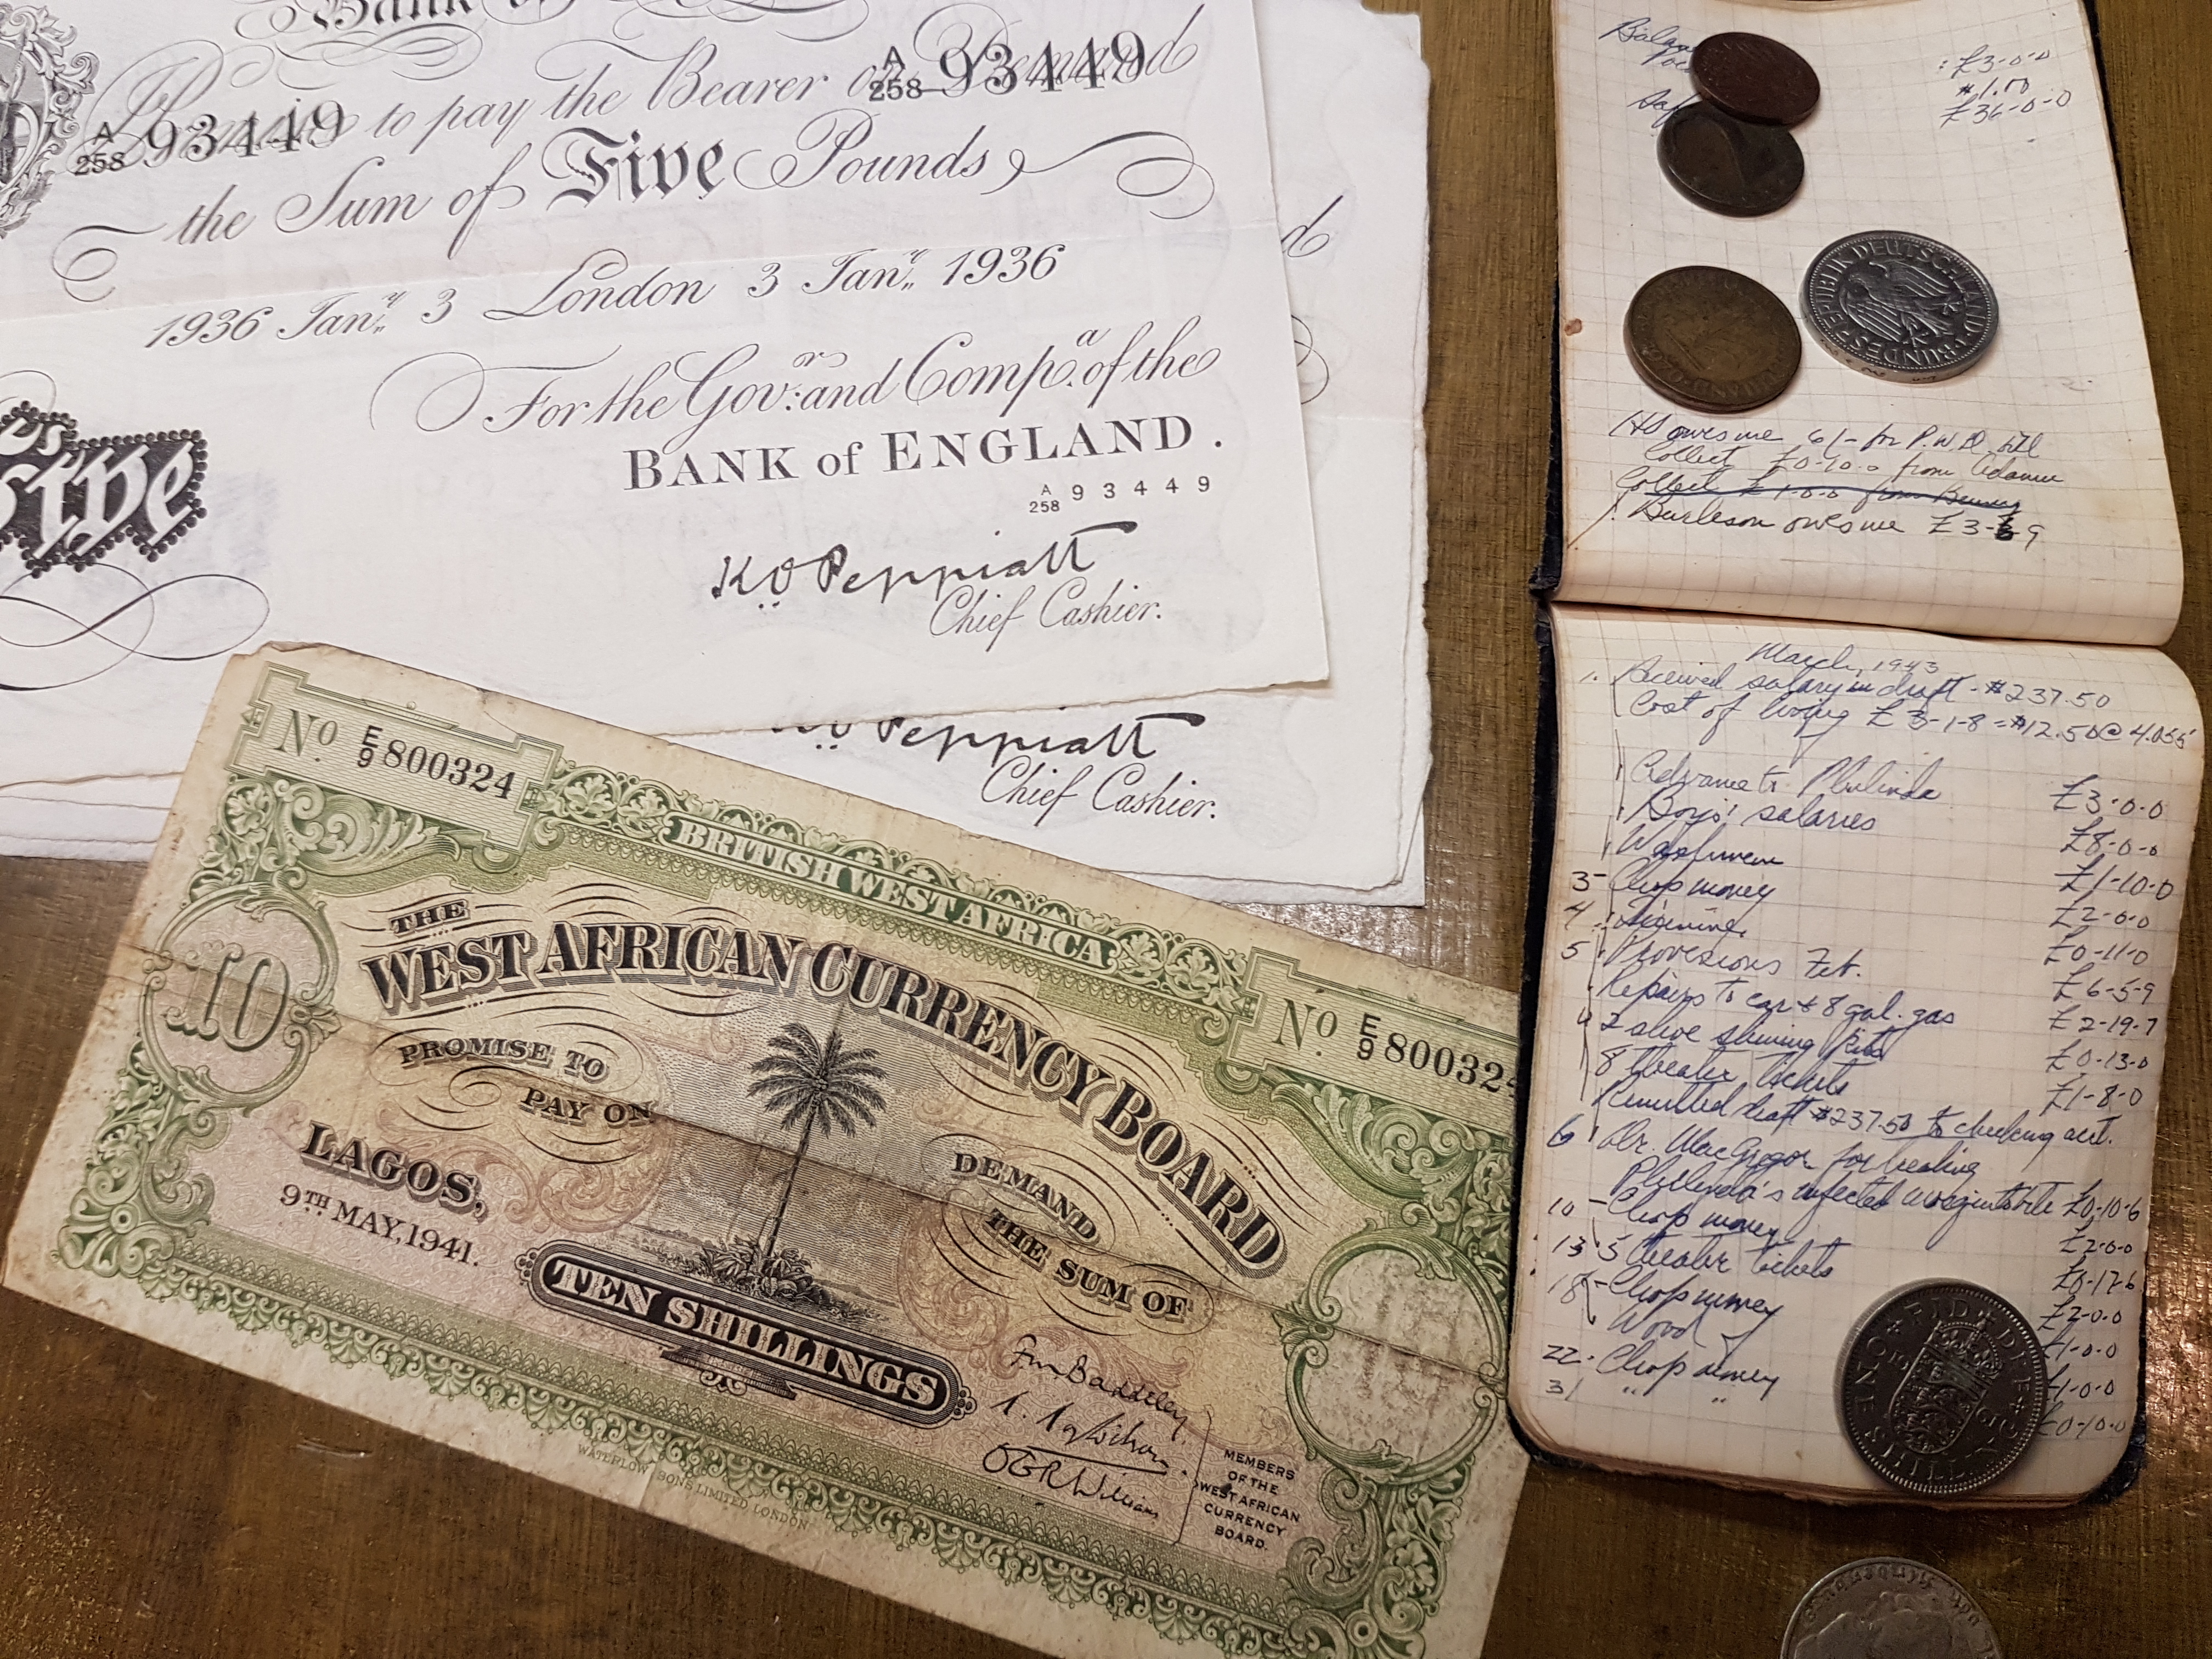 Bank of
to pay the Bearer on Demand
A 258 93449
A 258 93449
the Sum of Five Pounds
1936 Jan.y 3 London 3 Jan.y 1936
For the Gov.or and Comp.a of the
BANK of ENGLAND.
A 258 93449
K O Peppiatt
Chief Cashier.
Five
d
Peppiatt
Chief Cashier.
No. E/9 800324
BRITISH WEST AFRICA
No. E/9 80032
THE
WEST AFRICAN CURRENCY BOARD
10
PROMISE TO
PAY ON
DEMAND
THE SUM OF
LAGOS,
9TH MAY, 1941.
TEN SHILLINGS
OGRWilliams
MEMBERS
OF THE
WEST AFRICAN
CURRENCY
BOARD.
WATERLOW & SONS LIMITED LONDON
: £3-0-0
$1.00
£36-0-0
BUNDESREPUBLIK DEUTSCHLAND
owes me 6/- for P.W.D.
Collect £0-10-0 from
Collect £1-0-0 from
Burleson owes me £3- 9
March, 1943
1. Received salary in draft - $237.50
Cost of living £3-1-8 = $12.50 @ 4.055
Advance to Philinda £3-0-0
Boys' salaries £8-0-0
£1-10-0
3- Chop money £2-0-0
4 £0-11-0
5. Provisions Feb. £6-5-9
Repairs to car + 8 gal. gas £2-19-7
2 shoe shining kits £0-13-0
8 theater tickets £1-8-0
Remitted draft $237.50 to checking acct.
6 Dr. MacGregor for treating
Philinda's infected £0-10-6
10 - Chop money £2-0-0
13 5 theater tickets £0-17-6
18 - Chop money £2-0-0
Wood £1-0-0
22- Chop money £1-0-0
31 " " £0-10-0
FID DEF
SHILLING